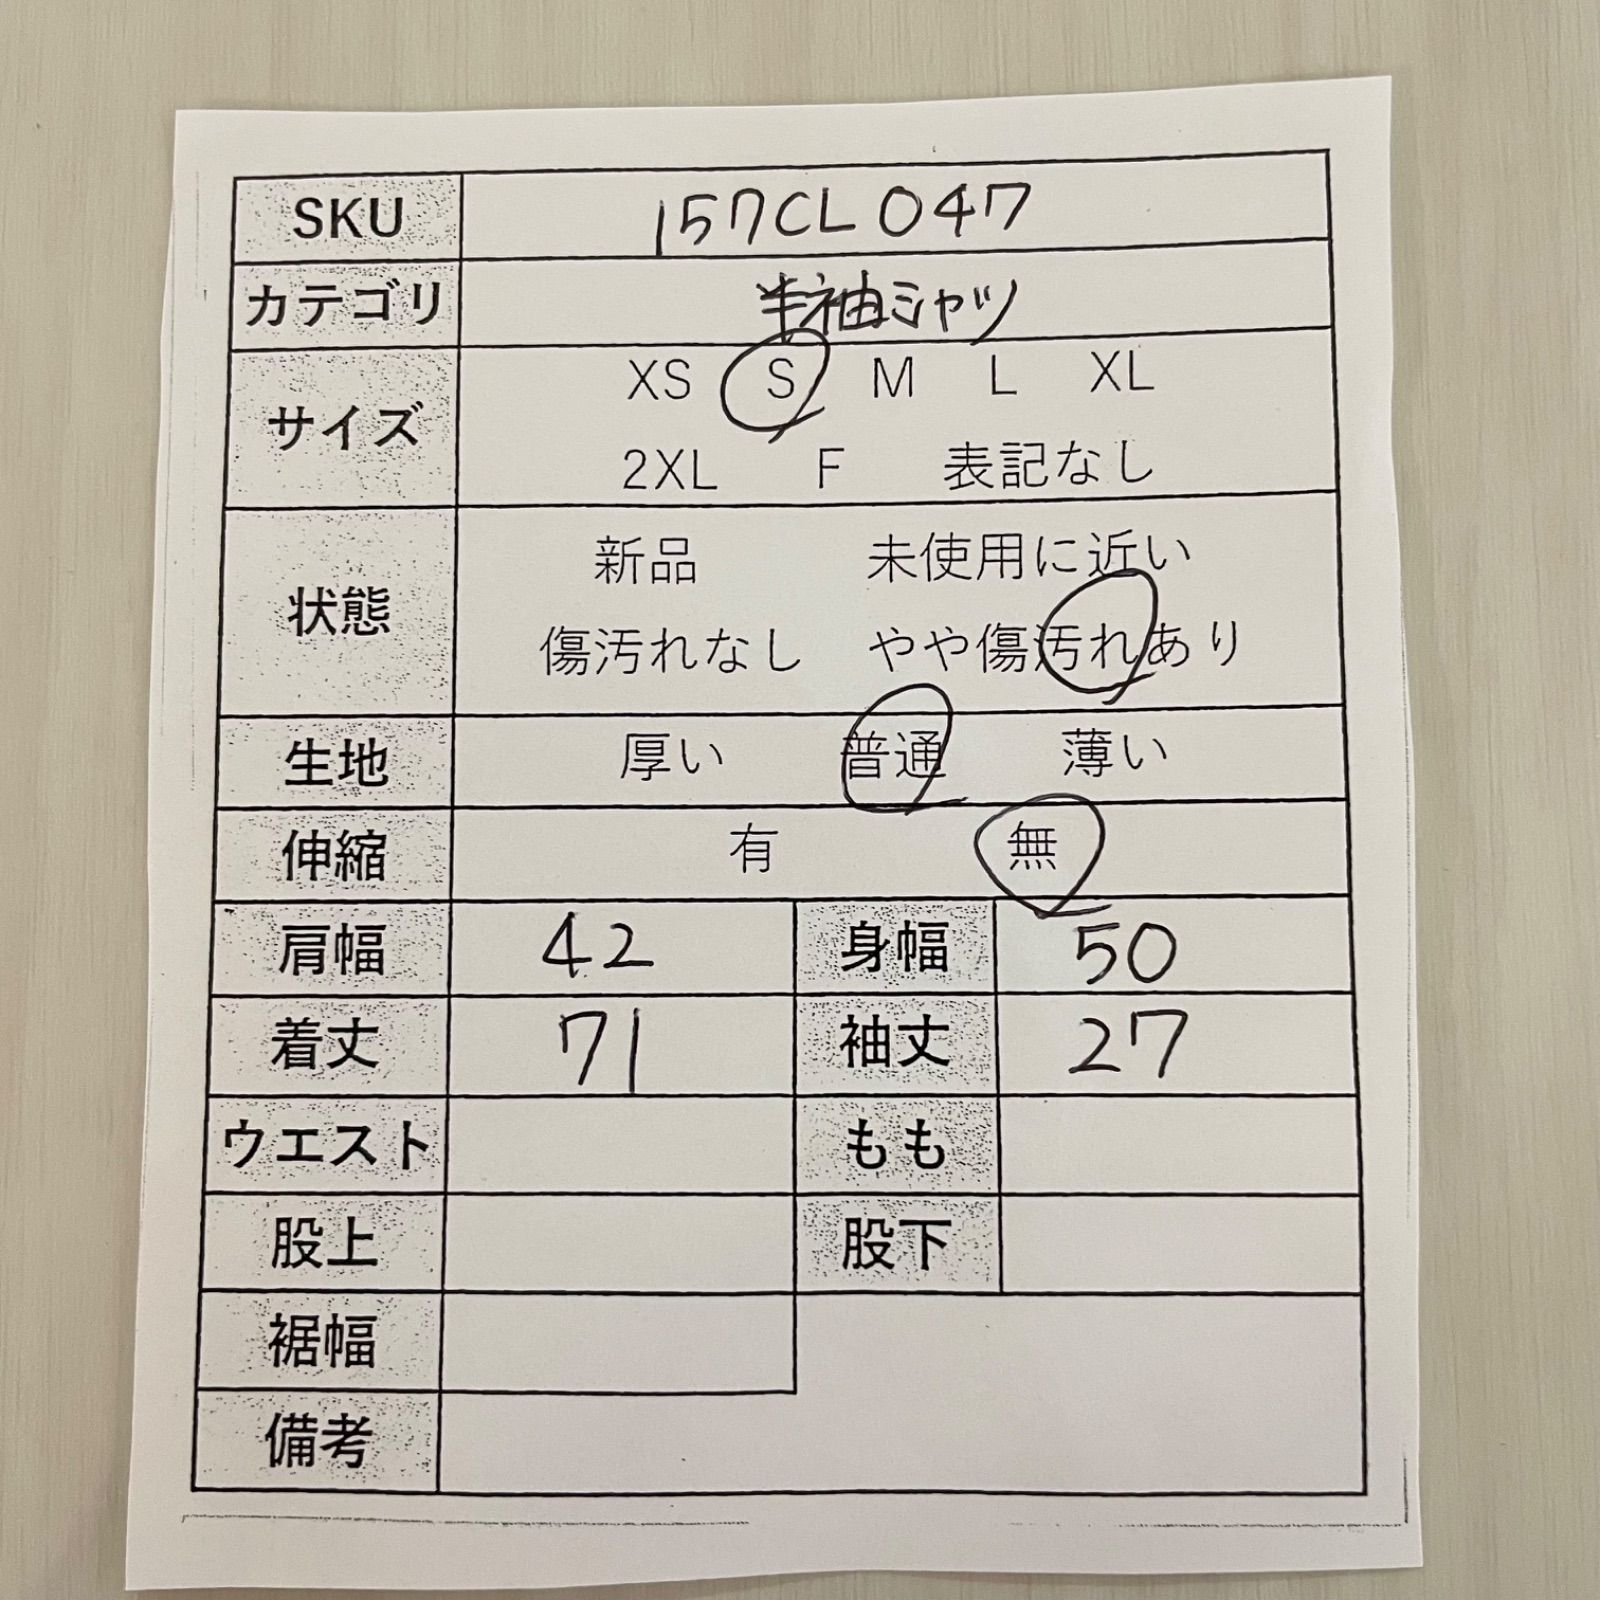 SKU 157CL047
カテゴリ 半袖シャツ
サイズ XS S M L XL
2XL F 表記なし
状態 新品 未使用に近い
傷汚れなし やや傷汚れあり
生地 厚い 普通 薄い
伸縮 有 無
肩幅 42 身幅 50
着丈 71 袖丈 27
ウエスト もも
股上 股下
裾幅
備考